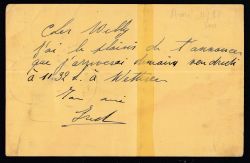 Cher Willy
j'ai le plaisir de t'annoncer
que j'arriverai demain vendredi
à 11.32 h. à
Ton ami
Fred